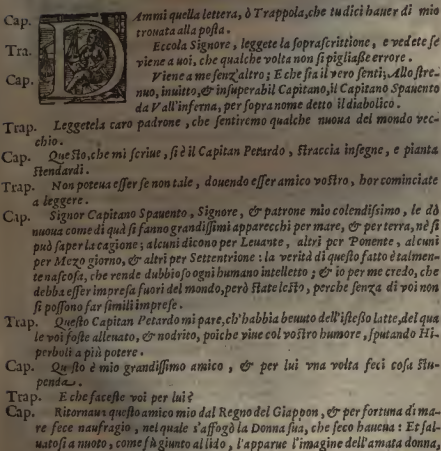 Cap. DAmmi quella lettera, ò Trappola, che tu dici hauer di mio
trouata alla posta.
Tra. Eccola Signore, leggete la soprascrittione, e vedete se
viene a uoi, che qualche volta non si pigliaße errore.
Cap. Viene a me senz'altro; E che sia il vero senti; Allo stre-
nuo, inuitto, & insuperabil Capitano, il Capitano Spauento
da Vall'inferna, per sopra nome detto il diabolico.
Trap. Leggetela caro padrone, che sentiremo qualche nuoua del mondo vec-
chio.
Cap. Questo, che mi scriue, si è il Capitan Petardo, straccia insegne, e pianta
stendardi.
Trap. Non poteua esser se non tale, douendo esser amico vostro, hor cominciate
a leggere.
Cap. Signor Capitano Spauento, Signore, & patrone mio colendissimo, le dò
nuoua come di quà si fanno grandissimi apparecchi per mare, & per terra, nè si
può saper la cagione; alcuni dicono per Leuante, altri per Ponente, alcuni
per Mezo giorno, & altri per Settentrione: la verità di questo fatto è talmen-
te nascosa, che rende dubbioso ogni humano intelletto; & io per me credo, che
debba esser impresa fuori del mondo, però state lesto, perche senza di voi non
si possono far simili imprese.
Trap. Questo Capitan Petardo mi pare, ch'habbia beuuto dell'istesso latte, del qua
le voi foste alleuato, & nodrito, poiche viue col vostro humore, sputando Hi-
perboli a più potere.
Cap. Questo è mio grandissimo amico, & per lui vna volta feci cosa stu-
penda.
Trap. E che faceste voi per lui?
Cap. Ritornaua questo amico mio dal Regno del Giappon, & per fortuna di ma-
re fece naufragio, nel quale s'affogò la Donna sua, che seco haueua: Et sal-
uatosi a nuoto, come fù giunto al lido, l'apparue l'imagine dell'amata donna,